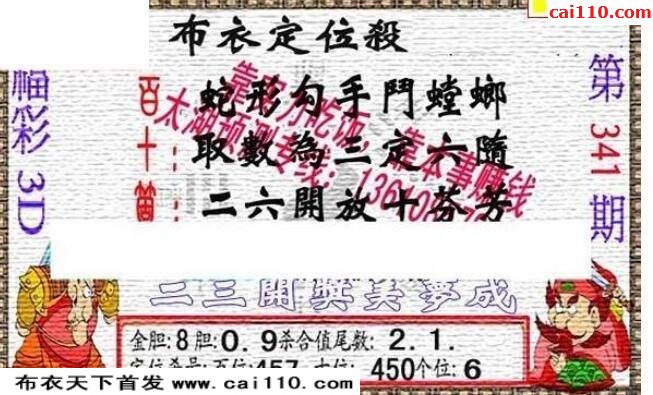 cai110.com
布衣定位殺
福彩3D
第341期
百
十
蛇形勾手鬥螳螂
取數為三定六隨
二六開放十芬芳
靠能力吃饭,靠本事赚钱
太湖预测专线:
二三開獎美夢成
金胆:8胆:0.9杀合值尾数:2.1.
定位杀号:百位:457 十位:450个位:6
布衣天下首发 www.cai110.com